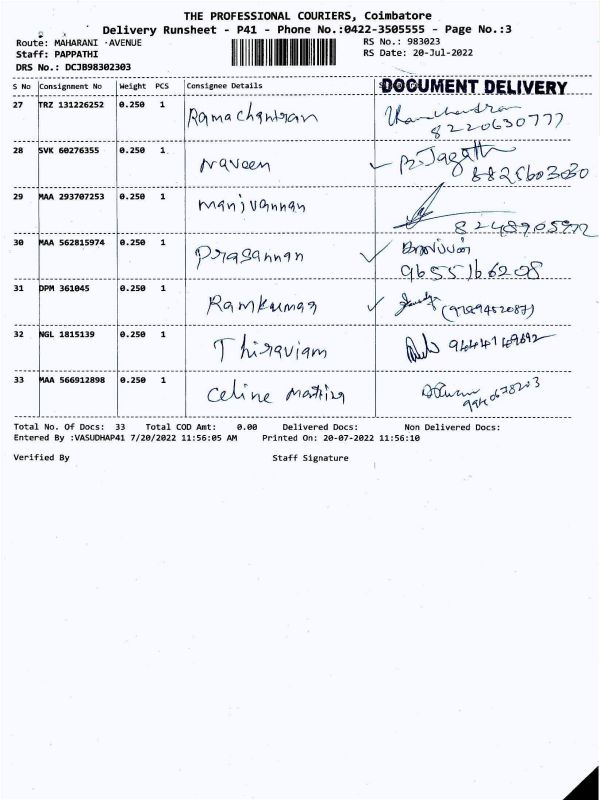 THE PROFESSIONAL COURIERS, Coimbatore
Delivery Runsheet - P41 - Phone No.:0422-3505555 - Page No.:3
Route: MAHARANI -AVENUE RS No.: 983023
Staff: PAPPATHI RS Date: 20-Jul-2022
DRS No.: DCJB98302303
DOCUMENT DELIVERY
S No Consignment No Weight PCS Consignee Details
27 TRZ 131226252 0.250 1 Ramachantran
8220630777
28 SVK 60276355 0.250 1 Naveen B. Jagath
8825603030
29 MAA 293707253 0.250 1 Manjvannan
8248905972
30 MAA 562815974 0.250 1 Prasannan
9655166208
31 DPM 361045 0.250 1 Ramkumar
32 NGL 1815139 0.250 1 Thiraviam
33 MAA 566912898 0.250 1 Celine
Total No. Of Docs: 33 Total COD Amt: 0.00 Delivered Docs: Non Delivered Docs:
Entered By :VASUDHAP41 7/20/2022 11:56:05 AM Printed On: 20-07-2022 11:56:10
Verified By Staff Signature